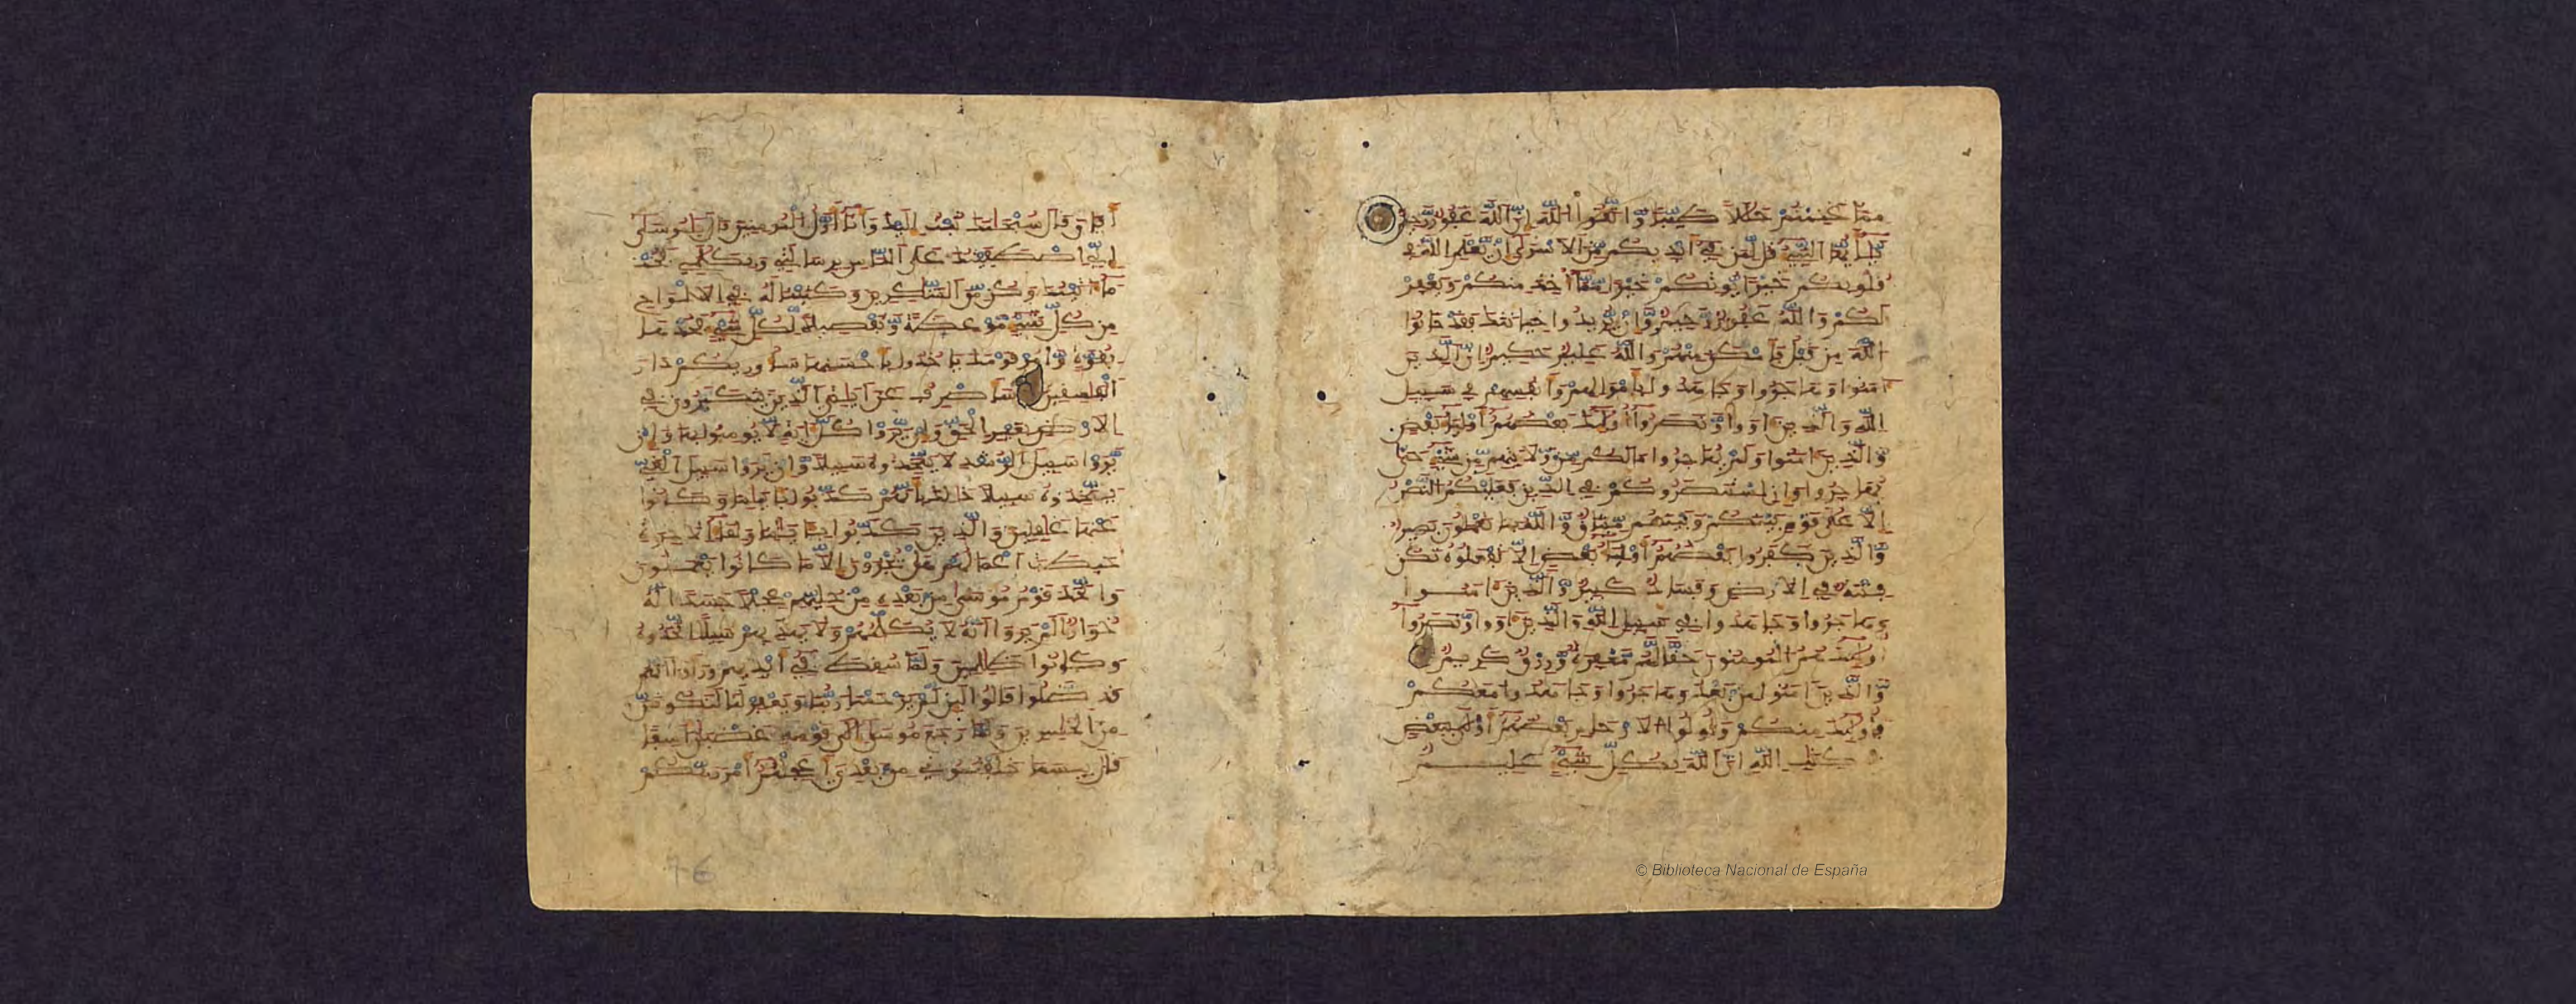 مما غنمتم حللا طيبا واتقوا الله ان الله غفور رحيم
يأيها النبي قل لمن في ايديكم من الاسرى ان يعلم الله في
قلوبكم خيرا يوتكم خيرا مما اخذ منكم ويغفر
لكم والله غفور رحيم وان يريدوا خيانتك فقد خانوا
الله من قبل فامكن منهم والله عليم حكيم ان الذين
امنوا وهاجروا وجاهدوا باموالهم وانفسهم في سبيل
الله والذين اووا ونصروا اولئك بعضهم اولياء بعض
والذين امنوا ولم يهاجروا ما لكم من ولايتهم من شيء حتى
يهاجروا وان استنصروكم في الدين فعليكم النصر
الا على قوم بينكم وبينهم ميثاق والله بما تعملون بصير
والذين كفروا بعضهم اولياء بعض الا تفعلوه تكن
فتنة في الارض وفساد كبير والذين امنوا
وهاجروا وجاهدوا في سبيل الله والذين اووا ونصروا
اولئك هم المومنون حقا لهم مغفرة ورزق كريم
والذين امنوا من بعد وهاجروا وجاهدوا معكم
فاولئك منكم واولوا الارحام بعضهم اولى ببعض
في كتب الله ان الله بكل شيء عليم
© Biblioteca Nacional de España
افاق قال سبحنك تبت اليك وانا اول المومنين قال يموسى
اني اصطفيتك على الناس برسالتي وبكلمي فخذ
ما اتيتك وكن من الشكرين وكتبنا له في الالواح
من كل شيء موعظة وتفصيلا لكل شيء فخذها
بقوة وامر قومك ياخذوا باحسنها ساوريكم دار
الفسقين ساصرف عن ايتي الذين يتكبرون في
الارض بغير الحق وان يروا كل اية لا يومنوا بها وان
يروا سبيل الرشد لا يتخذوه سبيلا وان يروا سبيل الغي
يتخذوه سبيلا ذلك بانهم كذبوا بايتنا وكانوا
عنها غفلين والذين كذبوا بايتنا ولقاء الاخرة
حبطت اعملهم هل يجزون الا ما كانوا يعملون
واتخذ قوم موسى من بعده من حليهم عجلا جسدا له
خوار الم يروا انه لا يكلمهم ولا يهديهم سبيلا اتخذوه
وكانوا ظلمين ولما سقط في ايديهم وراوا انهم
قد ضلوا قالوا لين لم يرحمنا ربنا ويغفر لنا لنكونن
من الخسرين ولما رجع موسى الى قومه غضبن اسفا
قال بيسما خلفتموني من بعدي اعجلتم امر ربكم
76